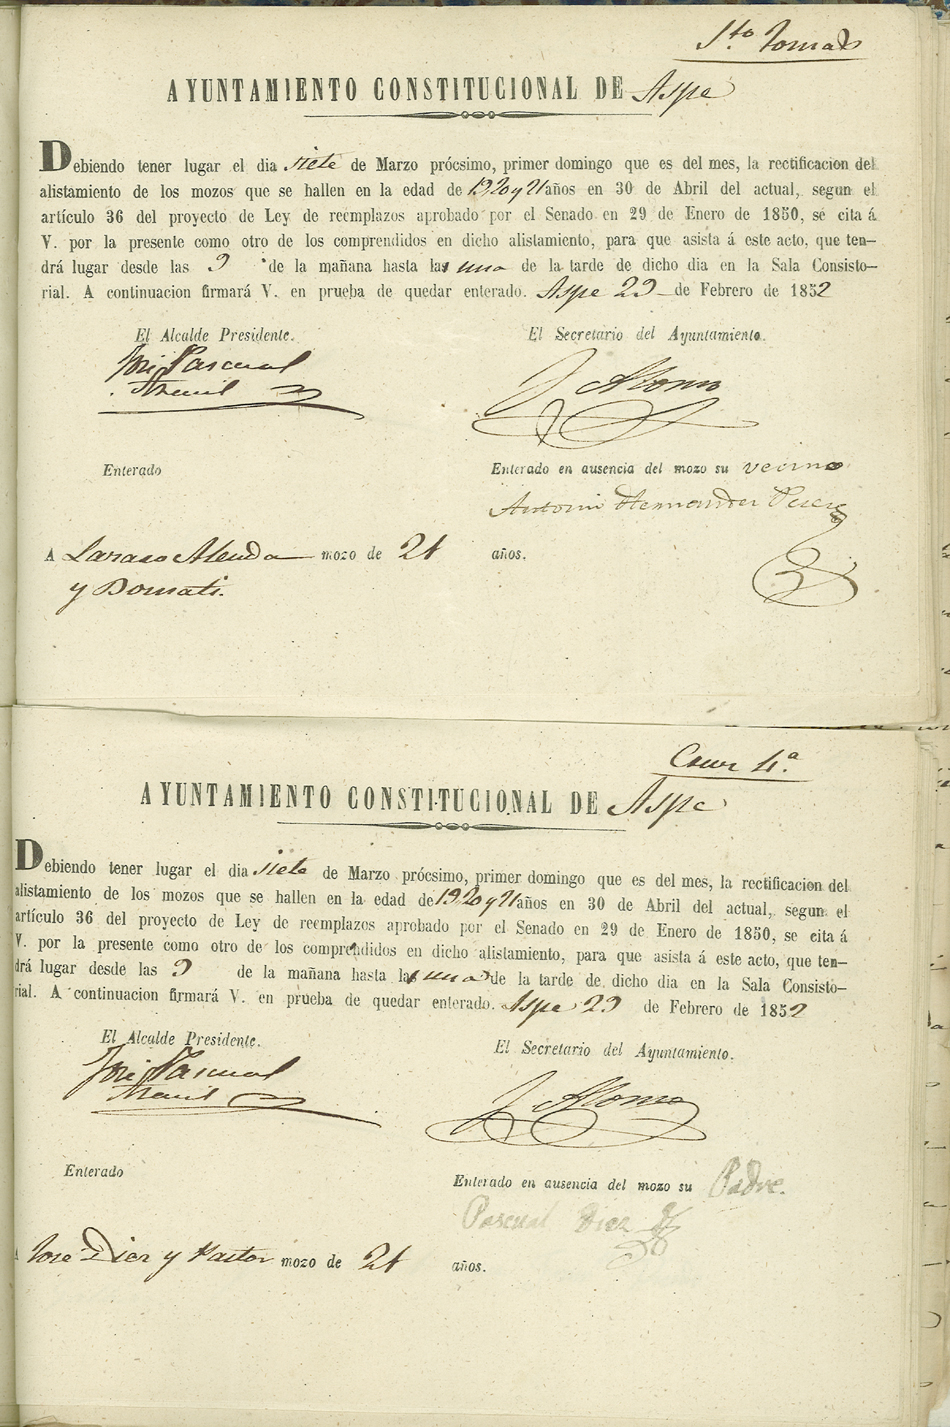 Sto Tomas
AYUNTAMIENTO CONSTITUCIONAL DE Aspe
Debiendo tener lugar el dia siete de Marzo prócsimo, primer domingo que es del mes, la rectificacion del
alistamiento de los mozos que se hallen en la edad de 19 20 y 21 años en 30 de Abril del actual, segun el
artículo 36 del proyecto de Ley de reemplazos aprobado por el Senado en 29 de Enero de 1850, se cita á
V. por la presente como otro de los comprendidos en dicho alistamiento, para que asista á este acto, que ten-
drá lugar desde las 9 de la mañana hasta las una de la tarde de dicho dia en la Sala Consisto-
rial. A continuacion firmará V. en prueba de quedar enterado. Aspe 29 de Febrero de 1852
El Alcalde Presidente. El Secretario del Ayuntamiento.
José Pascual J. Alonso
Enterado Enterado en ausencia del mozo su vecino
Antonio Hernandez Perez
A Lazaro Alenda mozo de 21 años.
y Bonati.
Cauz 4.a
AYUNTAMIENTO CONSTITUCIONAL DE Aspe
Debiendo tener lugar el dia siete de Marzo prócsimo, primer domingo que es del mes, la rectificacion del
alistamiento de los mozos que se hallen en la edad de 19 20 y 21 años en 30 de Abril del actual, segun el
artículo 36 del proyecto de Ley de reemplazos aprobado por el Senado en 29 de Enero de 1850, se cita á
V. por la presente como otro de los comprendidos en dicho alistamiento, para que asista á este acto, que ten-
drá lugar desde las 9 de la mañana hasta las una de la tarde de dicho dia en la Sala Consisto-
rial. A continuacion firmará V. en prueba de quedar enterado. Aspe 29 de Febrero de 1852
El Alcalde Presidente. El Secretario del Ayuntamiento.
José Pascual J. Alonso
Enterado Enterado en ausencia del mozo su Padre.
Pascual Diez
A Jose Diez y Pastor mozo de 21 años.